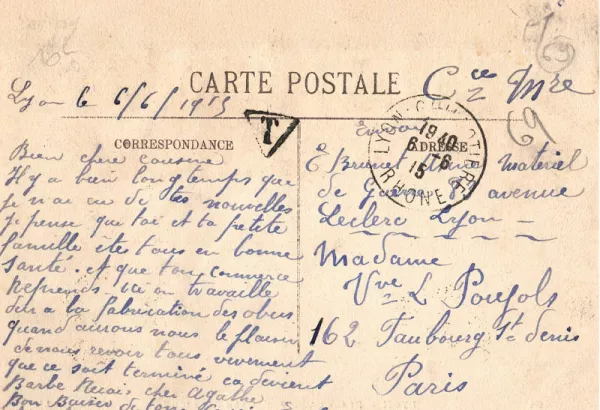 CARTE POSTALE
Cce Mre
Lyon le 6/6/1915
T
CORRESPONDANCE
ADRESSE
LYON-GUILLOTIERE
1940
6 - 6
15
RHONE
69
Bien chere cousine
Il y a bien longtemps que
je n'ai eu de tes nouvelles
je pense que toi et ta petite
famille etes tous en bonne
Santé. et que ton commerce
Reprends. ici on travaille
dur a la fabrication des obus
quand aurons nous le plaisir
de nous revoir tous vivement
que ce soit terminé ca devient
Barbe
cher Agathe
Bon Baiser de tous
E Brunet
Materiel
de
avenue
Leclerc Lyon
Madame
Vve L Poujols
162 Faubourg St denis
Paris